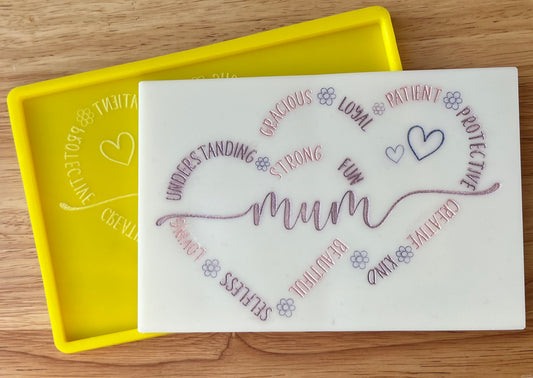 GRACIOUS
LOYAL
PATIENT
PROTECTIVE
UNDERSTANDING
STRONG
FUN
mum
CREATIVE
LOVING
BEAUTIFUL
KIND
SELFLESS
PATIENT
PROTECTIVE